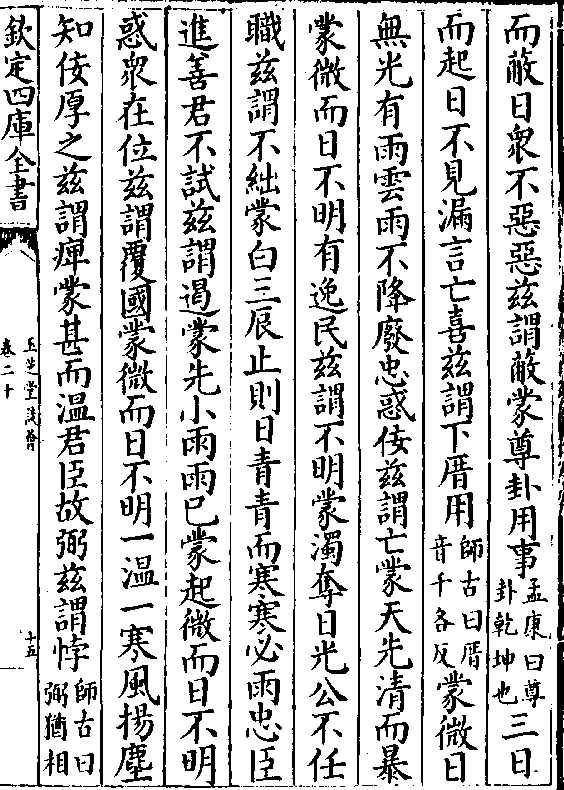 而蔽日衆不惡惡兹謂蔽蒙尊卦用事孟康曰尊卦乾坤也三日
而起日不見漏言亡喜兹謂下厝用師古曰厝音千各反蒙微日
無光有雨雲雨不降廢忠惑佞兹謂亡蒙天先清而暴
蒙微而日不明有逸民兹謂不明蒙濁奪日光公不任
職兹謂不絀蒙白三辰止則日青青而寒寒必雨忠臣
進善君不試兹謂遏蒙先小雨雨已蒙起微而日不明
惑衆在位兹謂覆國蒙微而日不明一温一寒風揚塵
知佞厚之兹謂痺蒙甚而温君臣故弼兹謂悖師古曰弼猶相
欽定四庫全書
玉芝堂談薈
卷二十
十五